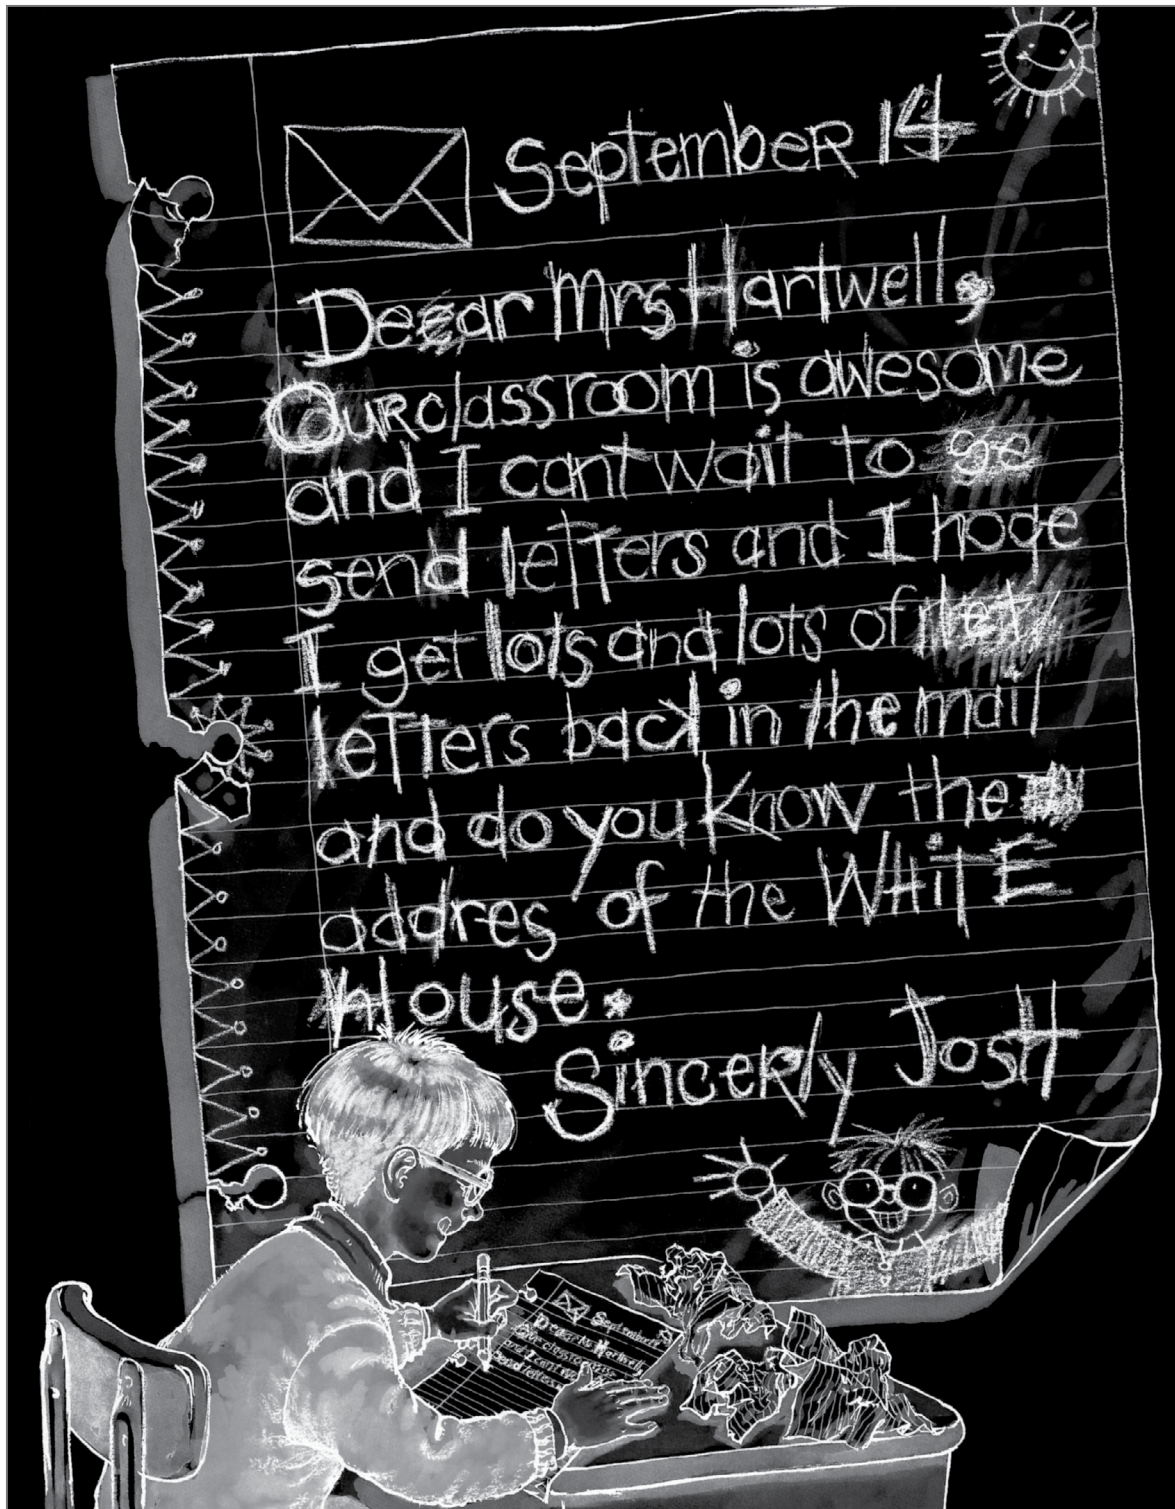 September 14
Deear Mrs Hartwell,
Our classroom is awesome
and I cant wait to
send letters and I hoge
I get lots and lots of
letters back in the mail
and do you know the
addres of the WHitE
House.
Sincerly JosH
September
Hartwell,
send letters